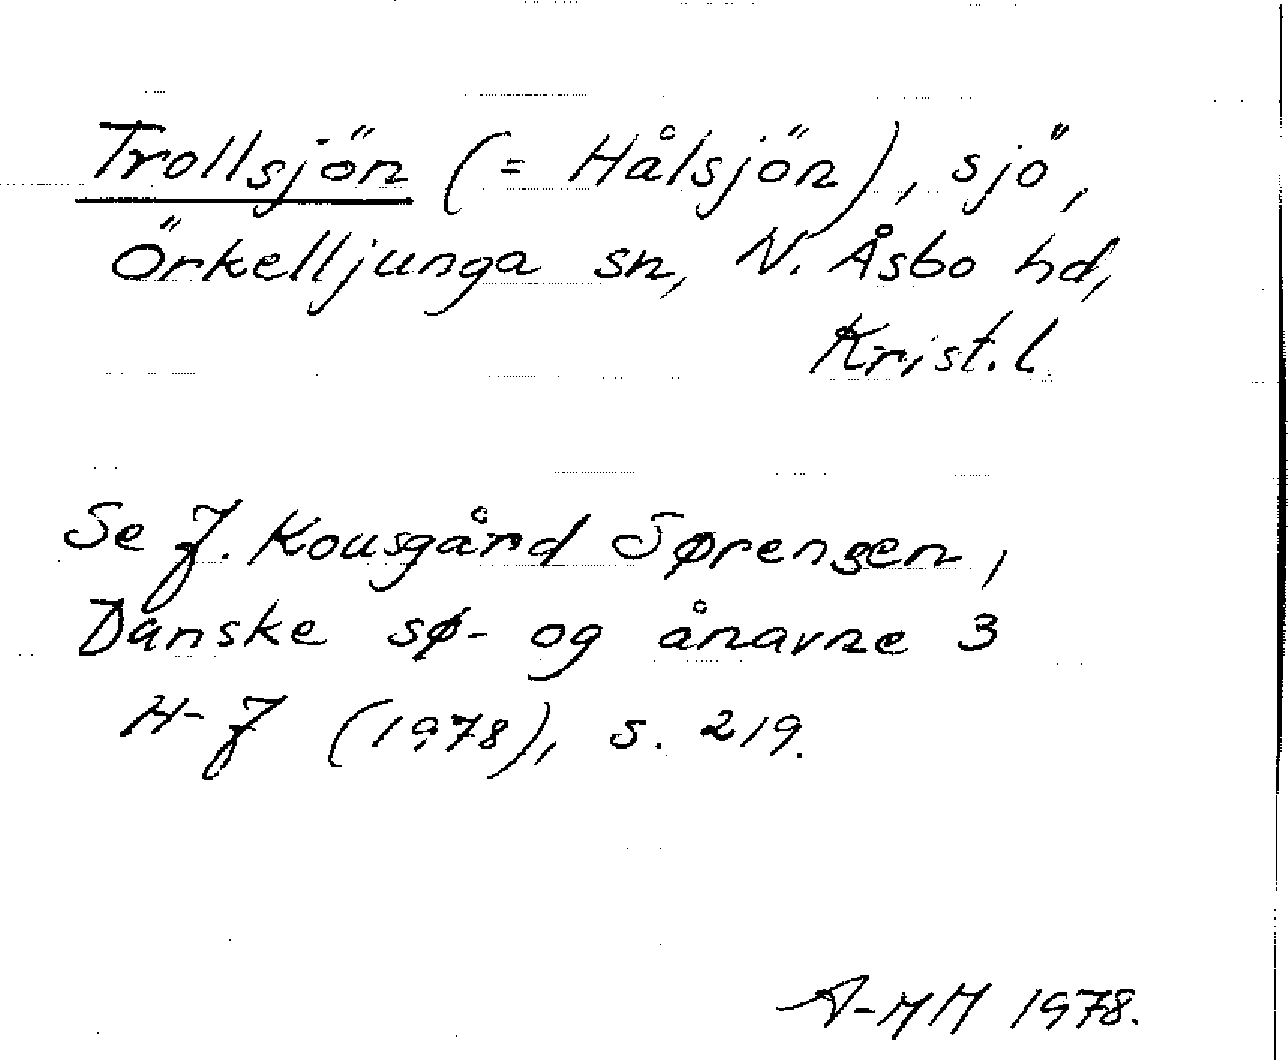 Trollsjön (= Hålsjön), sjö,
Örkelljunga sn, N. Åsbo hd,
Krist. l.
Se J. Kousgård Sørensen,
Danske sø- og ånavne 3
H-J (1978), s. 219.
A-MH 1978.